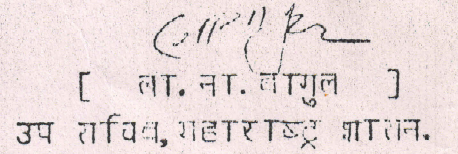 [ ला. ना. बागुल ]
उप सचिव, महाराष्ट्र शासन.